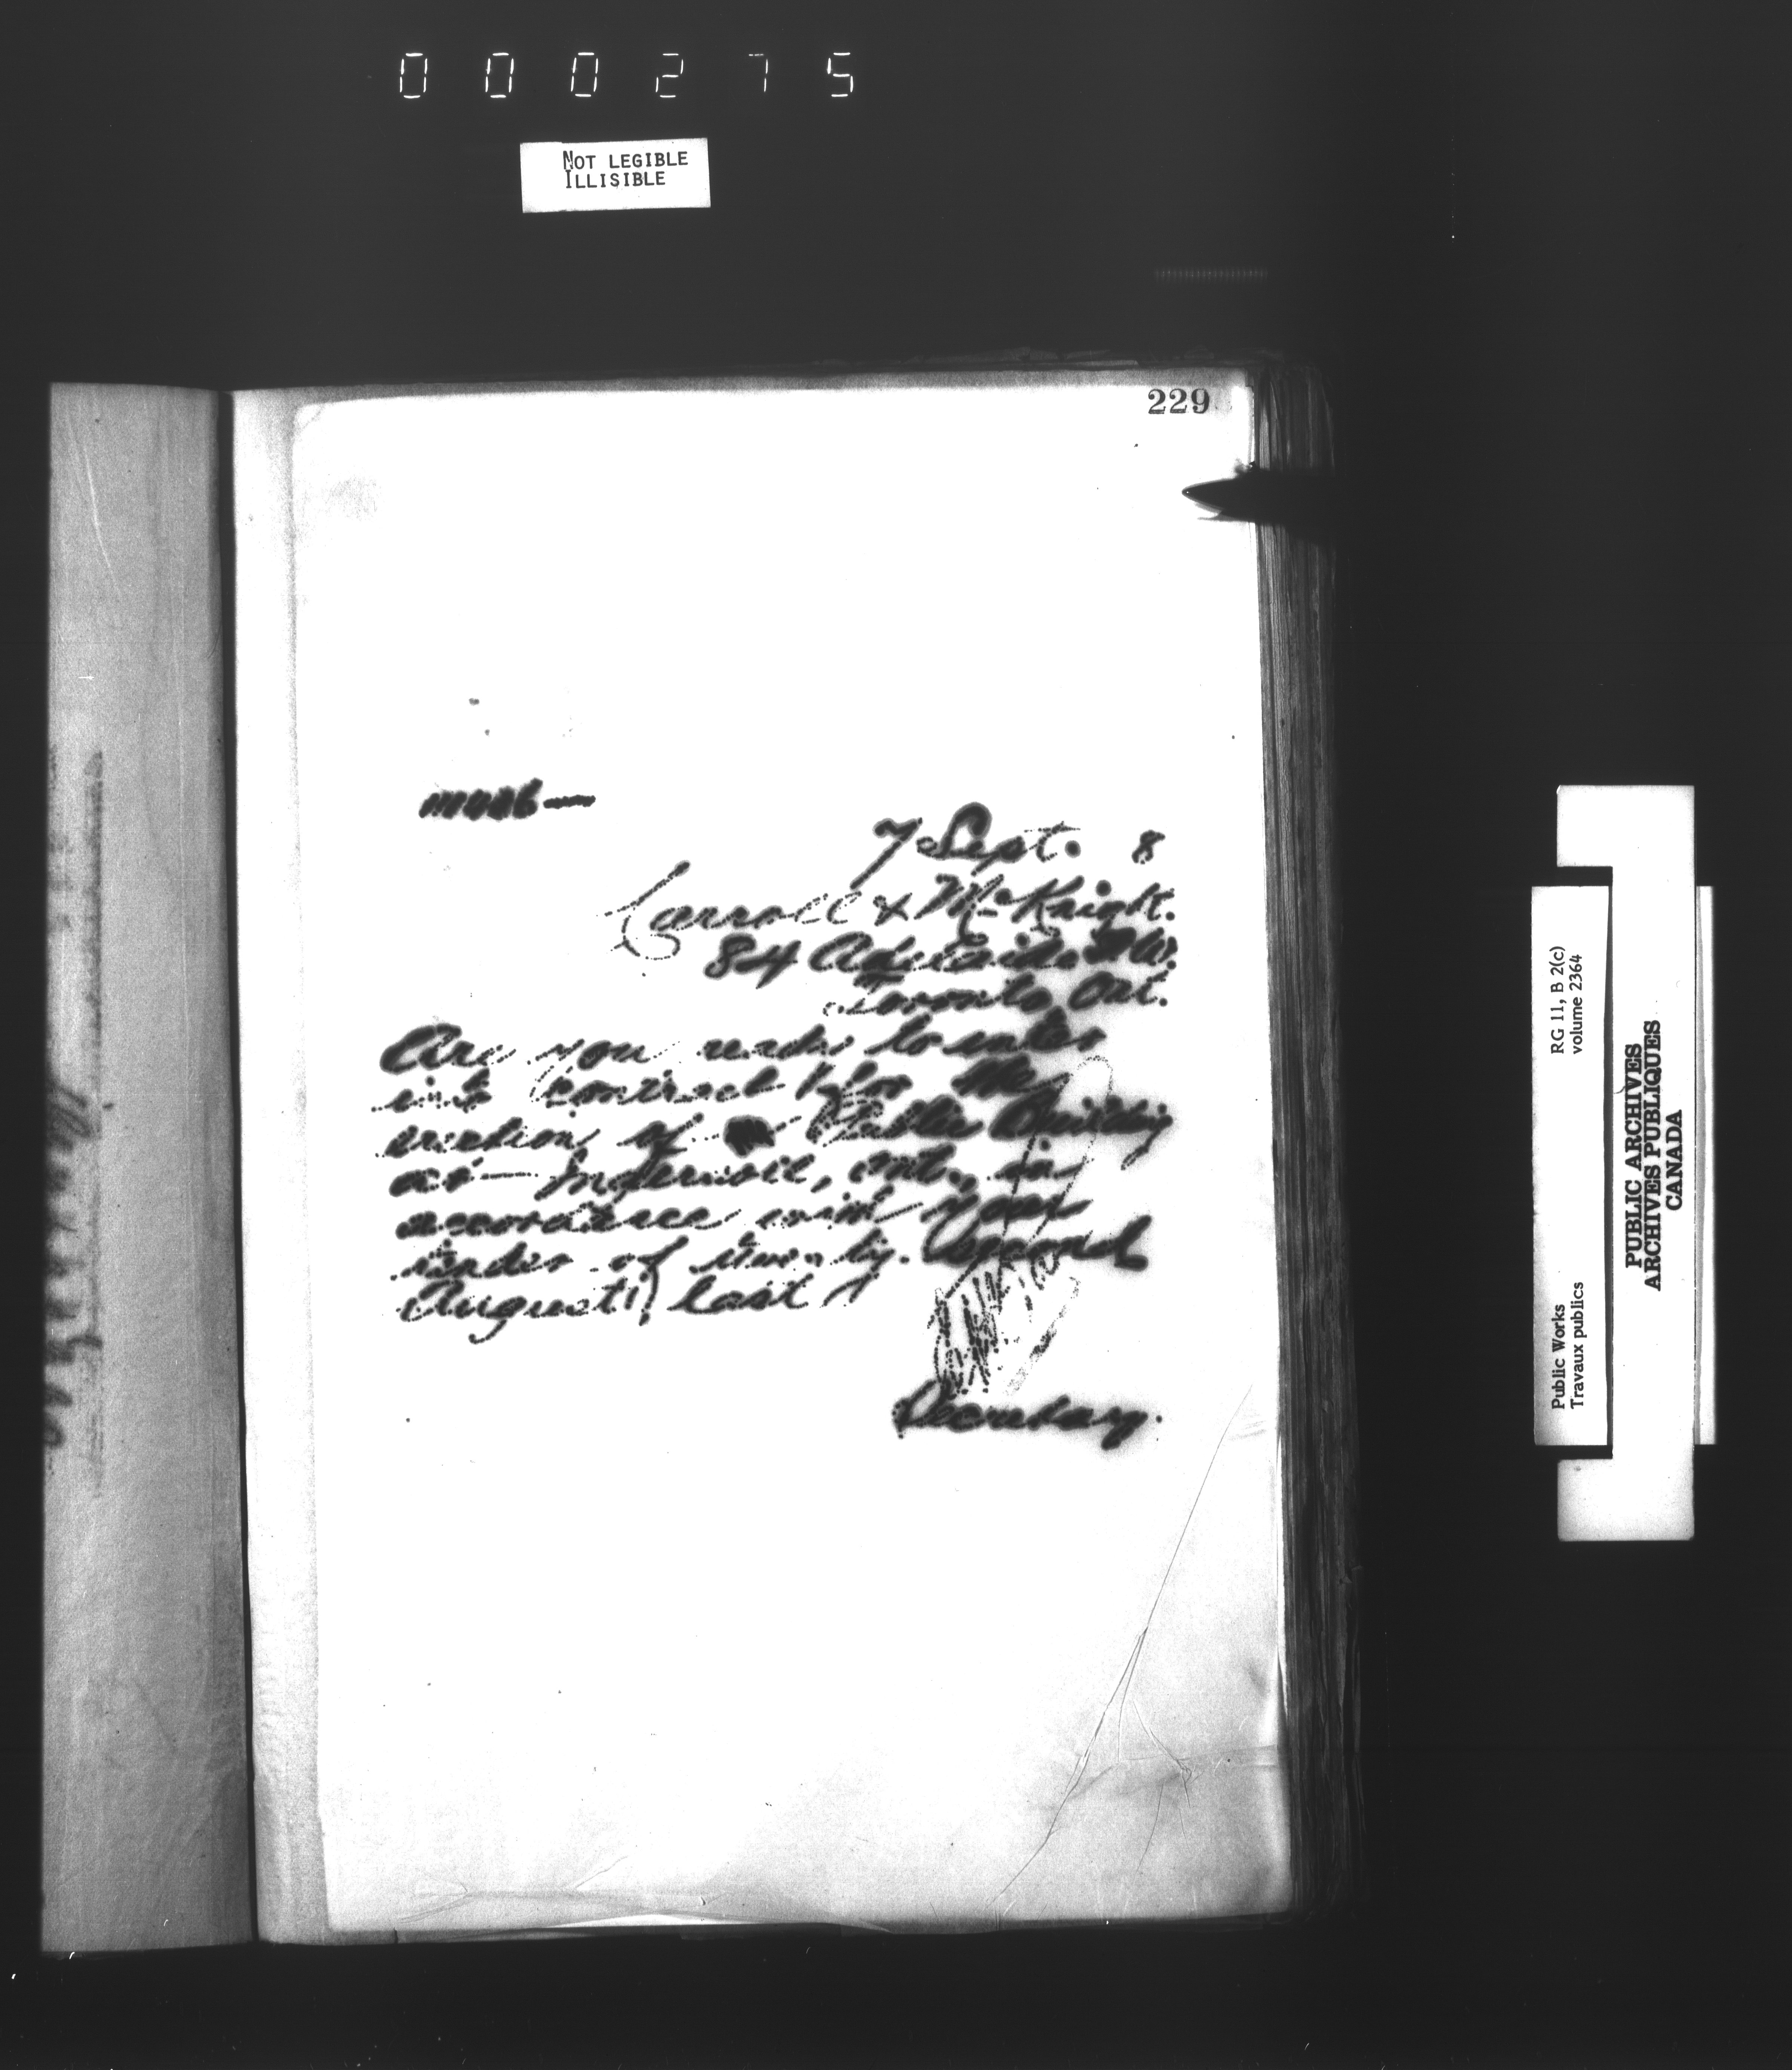 000275
NOT LEGIBLE
ILLISIBLE
229
7 Sept. 8
Carroll & McKnight.
84 Adelaide St W.
Toronto, Ont.
Are you ready to enter
into contract for the
erection of Public Building
at Ingersoll, Ont., in
accordance with your
tender of twenty second
August last
Secretary.
RG 11, B 2(c)
volume 2364
Public Works
Travaux publics
PUBLIC ARCHIVES
ARCHIVES PUBLIQUES
CANADA